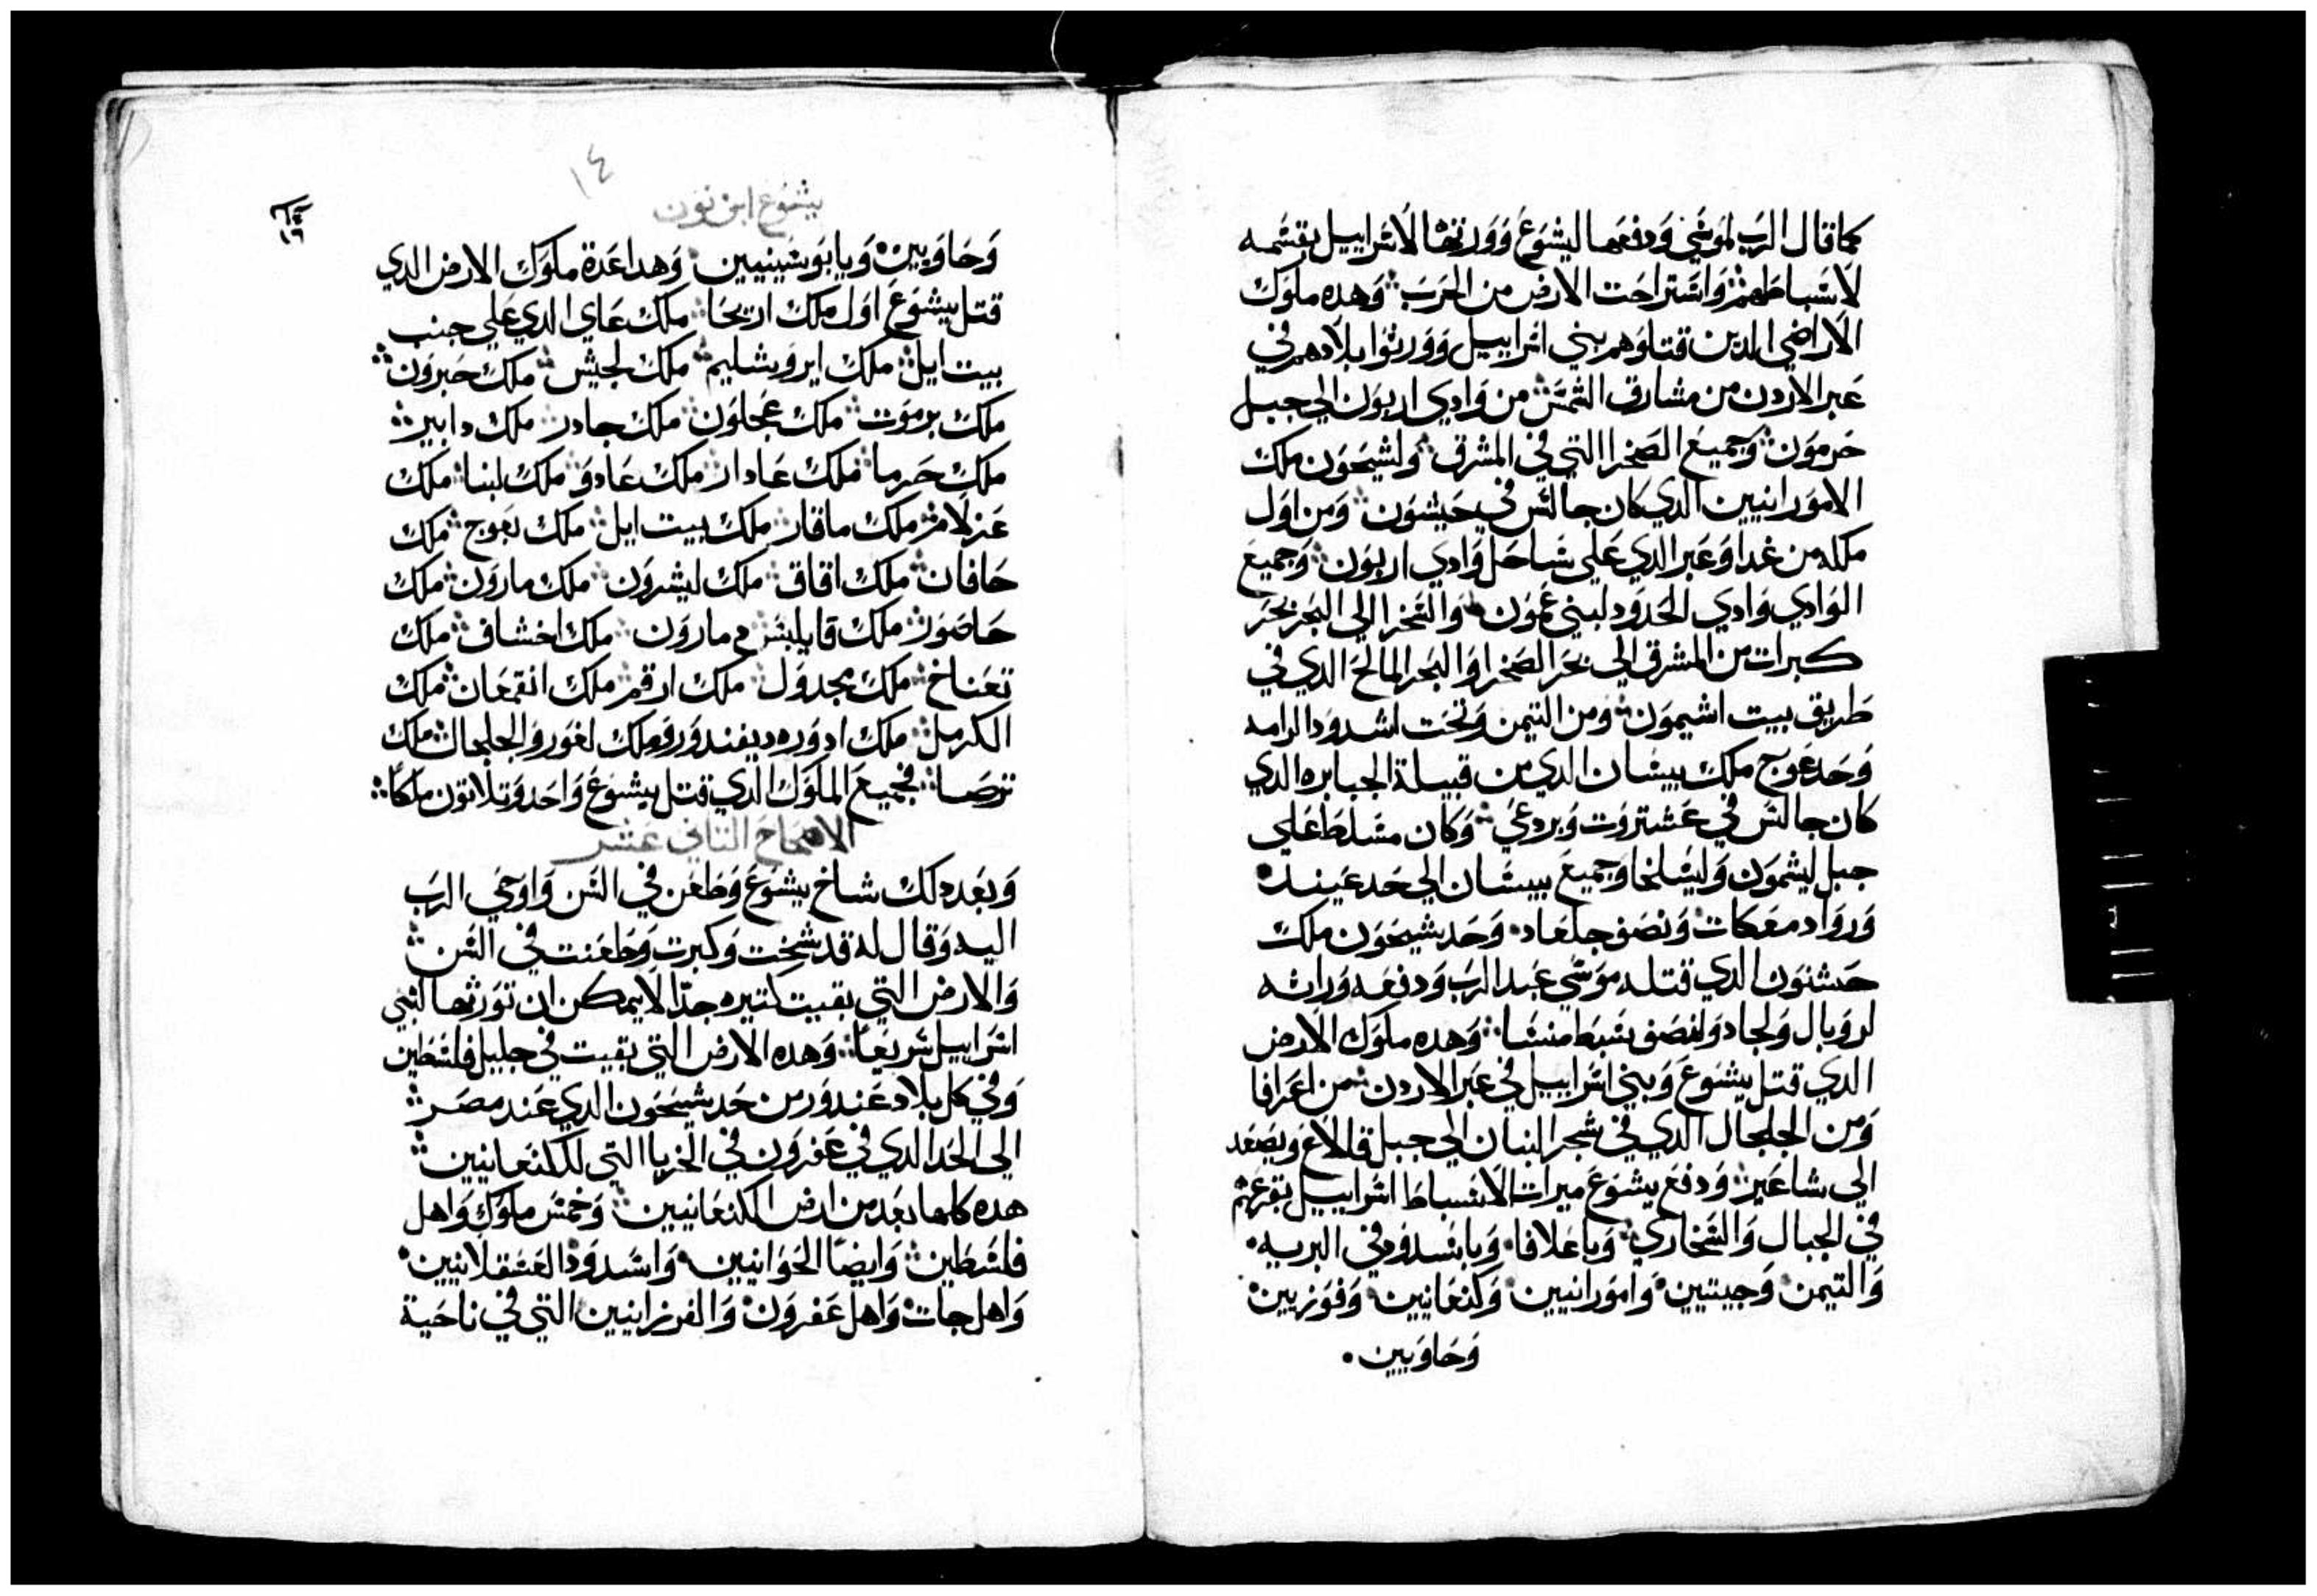 كما قال الرب لموسي ودفعها ليشوع وورتها لاسراييل بقسمه
لاسباطهم واستراحت الارض من الحرب وهده ملوك
الاراضي الدين قتلوهم بني اسراييل وورتوا بلادهم في
عبر الاردن من مشارق الشمس من وادي اربون الي جبل
حرمون وجميع الصخرا التي في المشرق ولشيحون ملك
الامورانيين الدي كان جالس في حيشون ومن اول
ملكه من غدا وعبر الدي علي ساحل وادي اربون وجميع
الوادي وادي الحدود لبني عمون والصخرا الي البحر بحر
كبرات من المشرق الي بحر الصخرا والبحر المالح الدي في
طريق بيت اشيمون ومن التيمن وتحت اسدود الرامه
وحد عوج ملك بيسان الدي من قبيلة الجبابره الدي
كان جالس في عشتروت وبردعي وكان مسلط علي
جبل ليشمون وليسلخا وجميع بيسان الي حد عينده
ورواد معكات ونصف جلعاد وحد شيحون ملك
حشنون الدي قتله موسي عبد الرب ودفعه وراته
لروبال ولجاد ولنصف سبط منسا وهده ملوك الارض
الدي قتل يشوع وبني اسراييل في عبر الاردن من اعرافا
ومن الجلجال الدي في شجر البنان الي جبل قالاع ويصعد
الي شاعير ودفع يشوع ميرات لاسباط اسراييل بقرعتهم
في الجبال والصخاري وباعلافا وباسدود في البريه
والتيمن وجيتيين وامورانيين وكنعانيين وفوزيين
وحاويين
١٤
يشوع ابن نون
وحاويين ويابوسينيين وهدا عدة ملوك الارض الدي
قتل يشوع اول ملك اريحا ملك عاي الدي علي جنب
بيت ايل ملك ايروشليم ملك لجيش ملك حبرون
ملك برموت ملك عجلون ملك جادر ملك دابير
ملك حرما ملك عادار ملك عادو ملك لبنا ملك
عزلام ملك ماقار ملك بيت ايل ملك بعوج ملك
حافان ملك افاق ملك ليشرون ملك مارون ملك
حاصور ملك قابليس مارون ملك اخشاف ملك
تعناخ ملك مجدول ملك ارقم ملك انقمعان ملك
الكرمل ملك ادوره ديفندور وملك لغور والجلجال ملك
ترصا فجميع الملوك الدي قتل يشوع واحد وتلاتون ملكا
الاصحاح التاني عشر
وبعد دلك شاخ يشوع وطعن في السن واوحي الرب
اليه وقال له قد شخت وكبرت وطعنت في السن
والارض التي بقيت كتيره جدا لا يمكن ان تورتها لبني
اسراييل سريعا وهده الارض التي بقيت في جليل فلسطين
وفي كل بلاد عندور من حد شيحون الدي عند مصر
الي الحد الدي في عفرون في الخريا التي للكنعانيين
هده كلها بعد من ارض الكنعانيين وخمس ملوك واهل
فلسطين وايضا الحوانيين واسدود العسقلانيين
واهل جات واهل عفرون والفرزانيين التي في ناحية